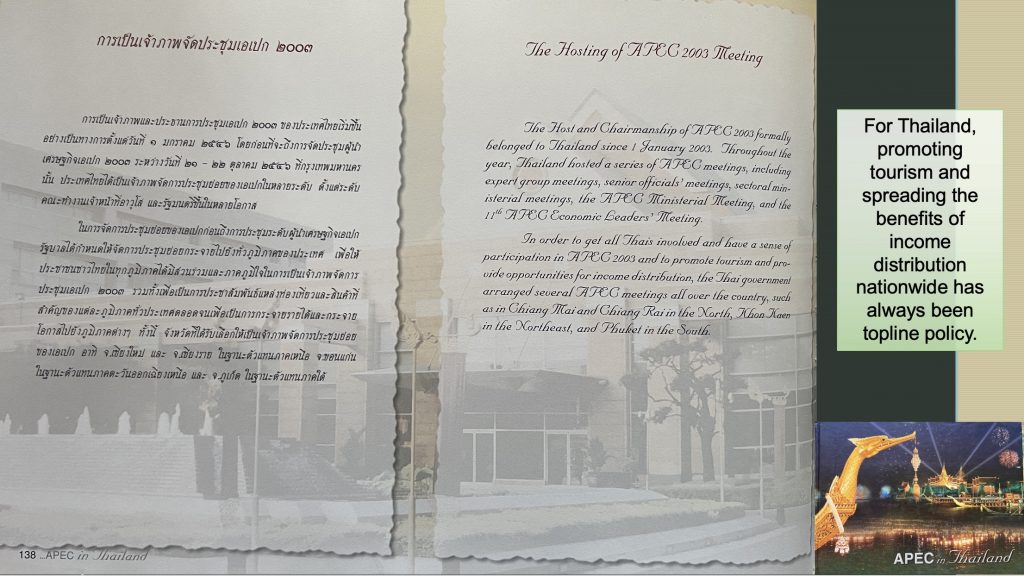 การเป็นเจ้าภาพจัดประชุมเอเปก ๒๐๐๓
การเป็นเจ้าภาพและประธานการประชุมเอเปก ๒๐๐๓ ของประเทศไทยเริ่มขึ้น
อย่างเป็นทางการตั้งแต่วันที่ ๑ มกราคม ๒๕๔๖ โดยก่อนที่จะถึงการจัดประชุมผู้นำ
เศรษฐกิจเอเปก ๒๐๐๓ ระหว่างวันที่ ๒๑ - ๒๒ ตุลาคม ๒๕๔๖ ที่กรุงเทพมหานคร
นั้น ประเทศไทยได้เป็นเจ้าภาพจัดการประชุมย่อยของเอเปกในหลายระดับ ตั้งแต่ระดับ
คณะทำงานเจ้าหน้าที่อาวุโส และรัฐมนตรีขึ้นในหลายโอกาส
ในการจัดการประชุมย่อยของเอเปกก่อนถึงการประชุมระดับผู้นำเศรษฐกิจเอเปก
รัฐบาลได้กำหนดให้จัดการประชุมย่อยกระจายไปยังทั่วภูมิภาคของประเทศ เพื่อให้
ประชาชนชาวไทยในทุกภูมิภาคได้มีส่วนร่วมและภาคภูมิใจในการเป็นเจ้าภาพจัดการ
ประชุมเอเปก ๒๐๐๓ รวมทั้งเพื่อเป็นการประชาสัมพันธ์แหล่งท่องเที่ยวและสินค้าที่
สำคัญของแต่ละภูมิภาคทั่วประเทศตลอดจนเพื่อเป็นการกระจายรายได้และกระจาย
โอกาสไปยังภูมิภาคต่างๆ ทั้งนี้ จังหวัดที่ได้รับเลือกให้เป็นเจ้าภาพจัดการประชุมย่อย
ของเอเปก อาทิ จ.เชียงใหม่ และ จ.เชียงราย ในฐานะตัวแทนภาคเหนือ จ.ขอนแก่น
ในฐานะตัวแทนภาคตะวันออกเฉียงเหนือ และ จ.ภูเก็ต ในฐานะตัวแทนภาคใต้
138 ...APEC in Thailand
The Hosting of APEC 2003 Meeting
The Host and Chairmanship of APEC 2003 formally
belonged to Thailand since 1 January 2003. Throughout the
year, Thailand hosted a series of APEC meetings, including
expert group meetings, senior officials' meetings, sectoral min-
isterial meetings, the APEC Ministerial Meeting, and the
11th APEC Economic Leaders' Meeting.
In order to get all Thais involved and have a sense of
participation in APEC 2003 and to promote tourism and pro-
vide opportunities for income distribution, the Thai government
arranged several APEC meetings all over the country, such
as in Chiang Mai and Chiang Rai in the North, Khon Kaen
in the Northeast, and Phuket in the South.
For Thailand,
promoting
tourism and
spreading the
benefits of
income
distribution
nationwide has
always been
topline policy.
APEC in Thailand